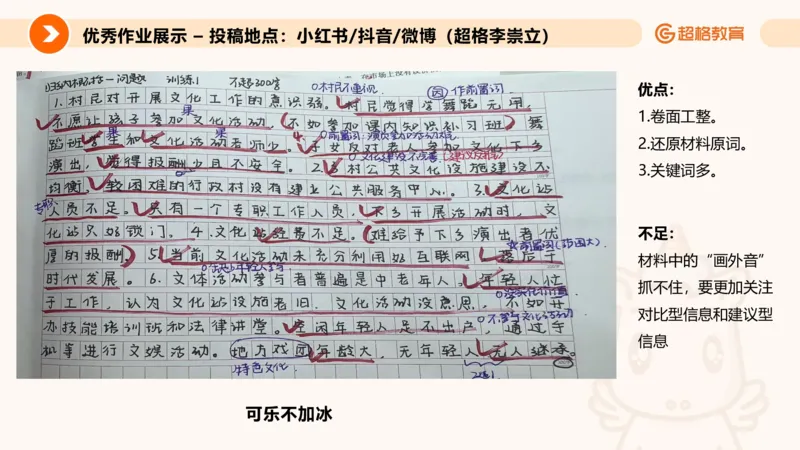 优秀作业展示 – 投稿地点：小红书/抖音/微博（超格李崇立）
超格教育
归纳概括—问题 训练1 不超300字
村民不重视
因 作前置词
1.村民对开展文化工作的意识弱。村民觉得学舞蹈无用，
果
不愿让孩子参加文化活动，（不如参加课内知识补习班）舞
果 果
蹈班学生和文化活动老师少。子女反对老人参加文化下乡
文化建设不完善
演出，觉得报酬少且不安全。2.乡村公共文化设施建设不
均衡，较困难的行政村没有建立公共服务中心。3.文化站
专职
人员不足。只有一个专职工作人员，下乡开展活动时，文
化站只好锁门。4.文化站经费不足。（难给予下乡演出者优
厚的报酬）5.当前文化活动未充分利用如互联网，落后于
时代发展。6.文体活动参与者普遍是中老年人。年轻人忙
于工作，认为文化站设施老旧，文化活动没意思，不如开
办技能培训班和法律讲堂。空闲年轻人足不出户，通过手
机等进行文娱活动。地方戏团年龄大，无年轻人无人继承。
特色文化
优点：
1.卷面工整。
2.还原材料原词。
3.关键词多。
不足：
材料中的“画外音”
抓不住，要更加关注
对比型信息和建议型
信息
可乐不加冰